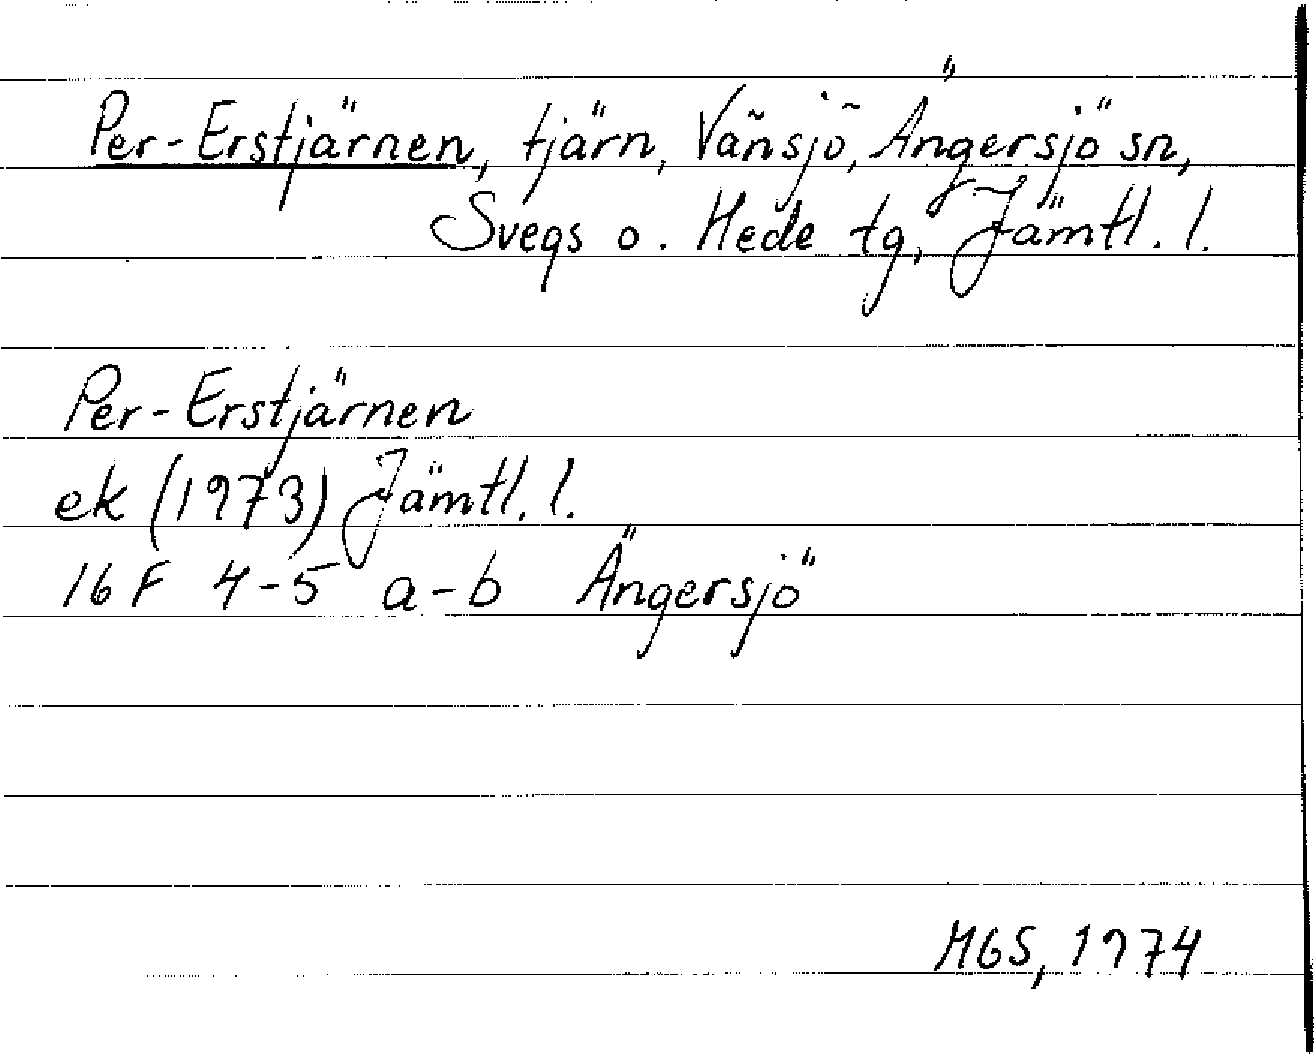 Per-Erstjärnen, tjärn, Vänsjö, Ängersjö sn,
Svegs o. Hede tg, Jämtl. l.
Per-Erstjärnen
ek (1973) Jämtl. l.
16 F 4-5 a-b Ängersjö
MGS, 1974